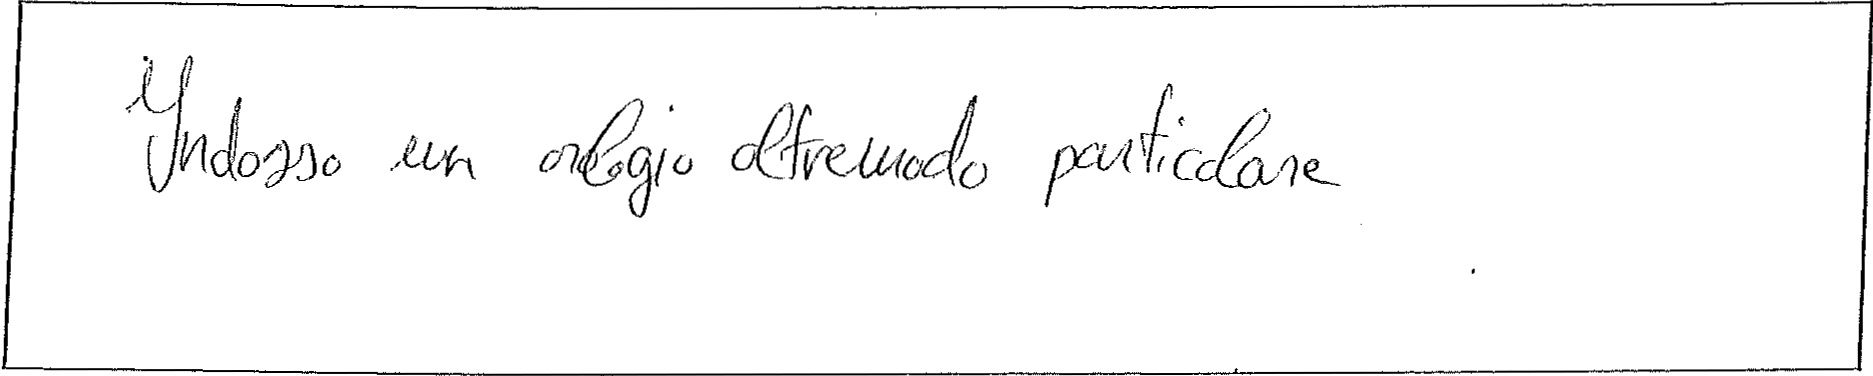 Indosso un orologio oltremodo particolare